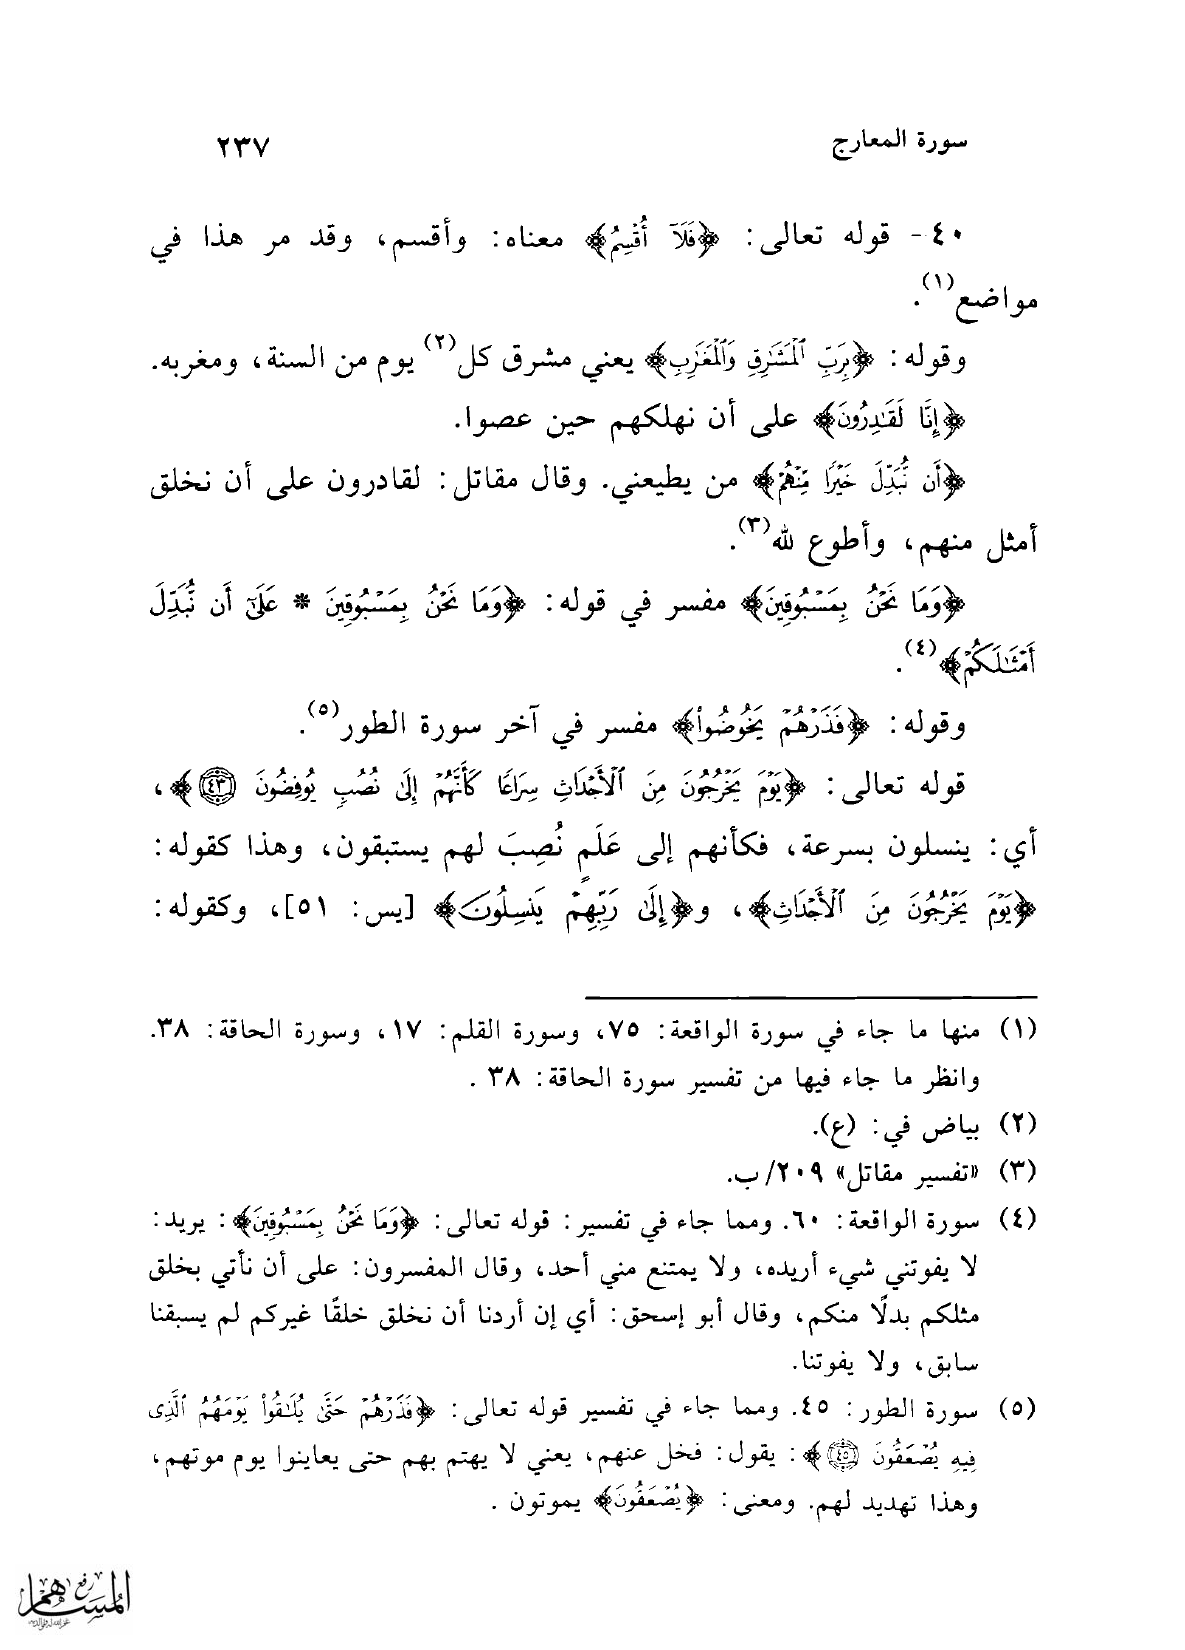 سورة المعارج
٢٣٧
٤٠- قوله تعالى: ﴿فَلَآ أُقْسِمُ﴾ معناه: وأقسم، وقد مر هذا في
مواضع(١).
وقوله: ﴿بِرَبِّ ٱلْمَشَٰرِقِ وَٱلْمَغَٰرِبِ﴾ يعني مشرق كل(٢) يوم من السنة، ومغربه.
﴿إِنَّا لَقَٰدِرُونَ﴾ على أن نهلكهم حين عصوا.
﴿أَن نُّبَدِّلَ خَيْرًا مِّنْهُمْ﴾ من يطيعني. وقال مقاتل: لقادرون على أن نخلق
أمثل منهم، وأطوع لله(٣).
﴿وَمَا نَحْنُ بِمَسْبُوقِينَ﴾ مفسر في قوله: ﴿وَمَا نَحْنُ بِمَسْبُوقِينَ * عَلَىٰٓ أَن نُّبَدِّلَ
أَمْثَٰلَكُمْ﴾(٤).
وقوله: ﴿فَذَرْهُمْ يَخُوضُوا۟﴾ مفسر في آخر سورة الطور(٥).
قوله تعالى: ﴿يَوْمَ يَخْرُجُونَ مِنَ ٱلْأَجْدَاثِ سِرَاعًا كَأَنَّهُمْ إِلَىٰ نُصُبٍ يُوفِضُونَ ٤٣﴾،
أي: ينسلون بسرعة، فكأنهم إلى عَلَمٍ نُصِبَ لهم يستبقون، وهذا كقوله:
﴿يَوْمَ يَخْرُجُونَ مِنَ ٱلْأَجْدَاثِ﴾، و﴿إِلَىٰ رَبِّهِمْ يَنسِلُونَ﴾ [يس: ٥١]، وكقوله:
(١) منها ما جاء في سورة الواقعة: ٧٥، وسورة القلم: ١٧، وسورة الحاقة: ٣٨.
وانظر ما جاء فيها من تفسير سورة الحاقة: ٣٨ .
(٢) بياض في: (ع).
(٣) «تفسير مقاتل» ٢٠٩/ ب.
(٤) سورة الواقعة: ٦٠. ومما جاء في تفسير: قوله تعالى: ﴿وَمَا نَحْنُ بِمَسْبُوقِينَ﴾: يريد:
لا يفوتني شيء أريده، ولا يمتنع مني أحد، وقال المفسرون: على أن نأتي بخلق
مثلكم بدلًا منكم، وقال أبو إسحق: أي إن أردنا أن نخلق خلقًا غيركم لم يسبقنا
سابق، ولا يفوتنا.
(٥) سورة الطور: ٤٥. ومما جاء في تفسير قوله تعالى: ﴿فَذَرْهُمْ حَتَّىٰ يُلَٰقُوا۟ يَوْمَهُمُ ٱلَّذِى
فِيهِ يُصْعَقُونَ ٤٥﴾: يقول: فخل عنهم، يعني لا يهتم بهم حتى يعاينوا يوم موتهم،
وهذا تهديد لهم. ومعنى: ﴿يُصْعَقُونَ﴾ يموتون .
رفع
المساهم